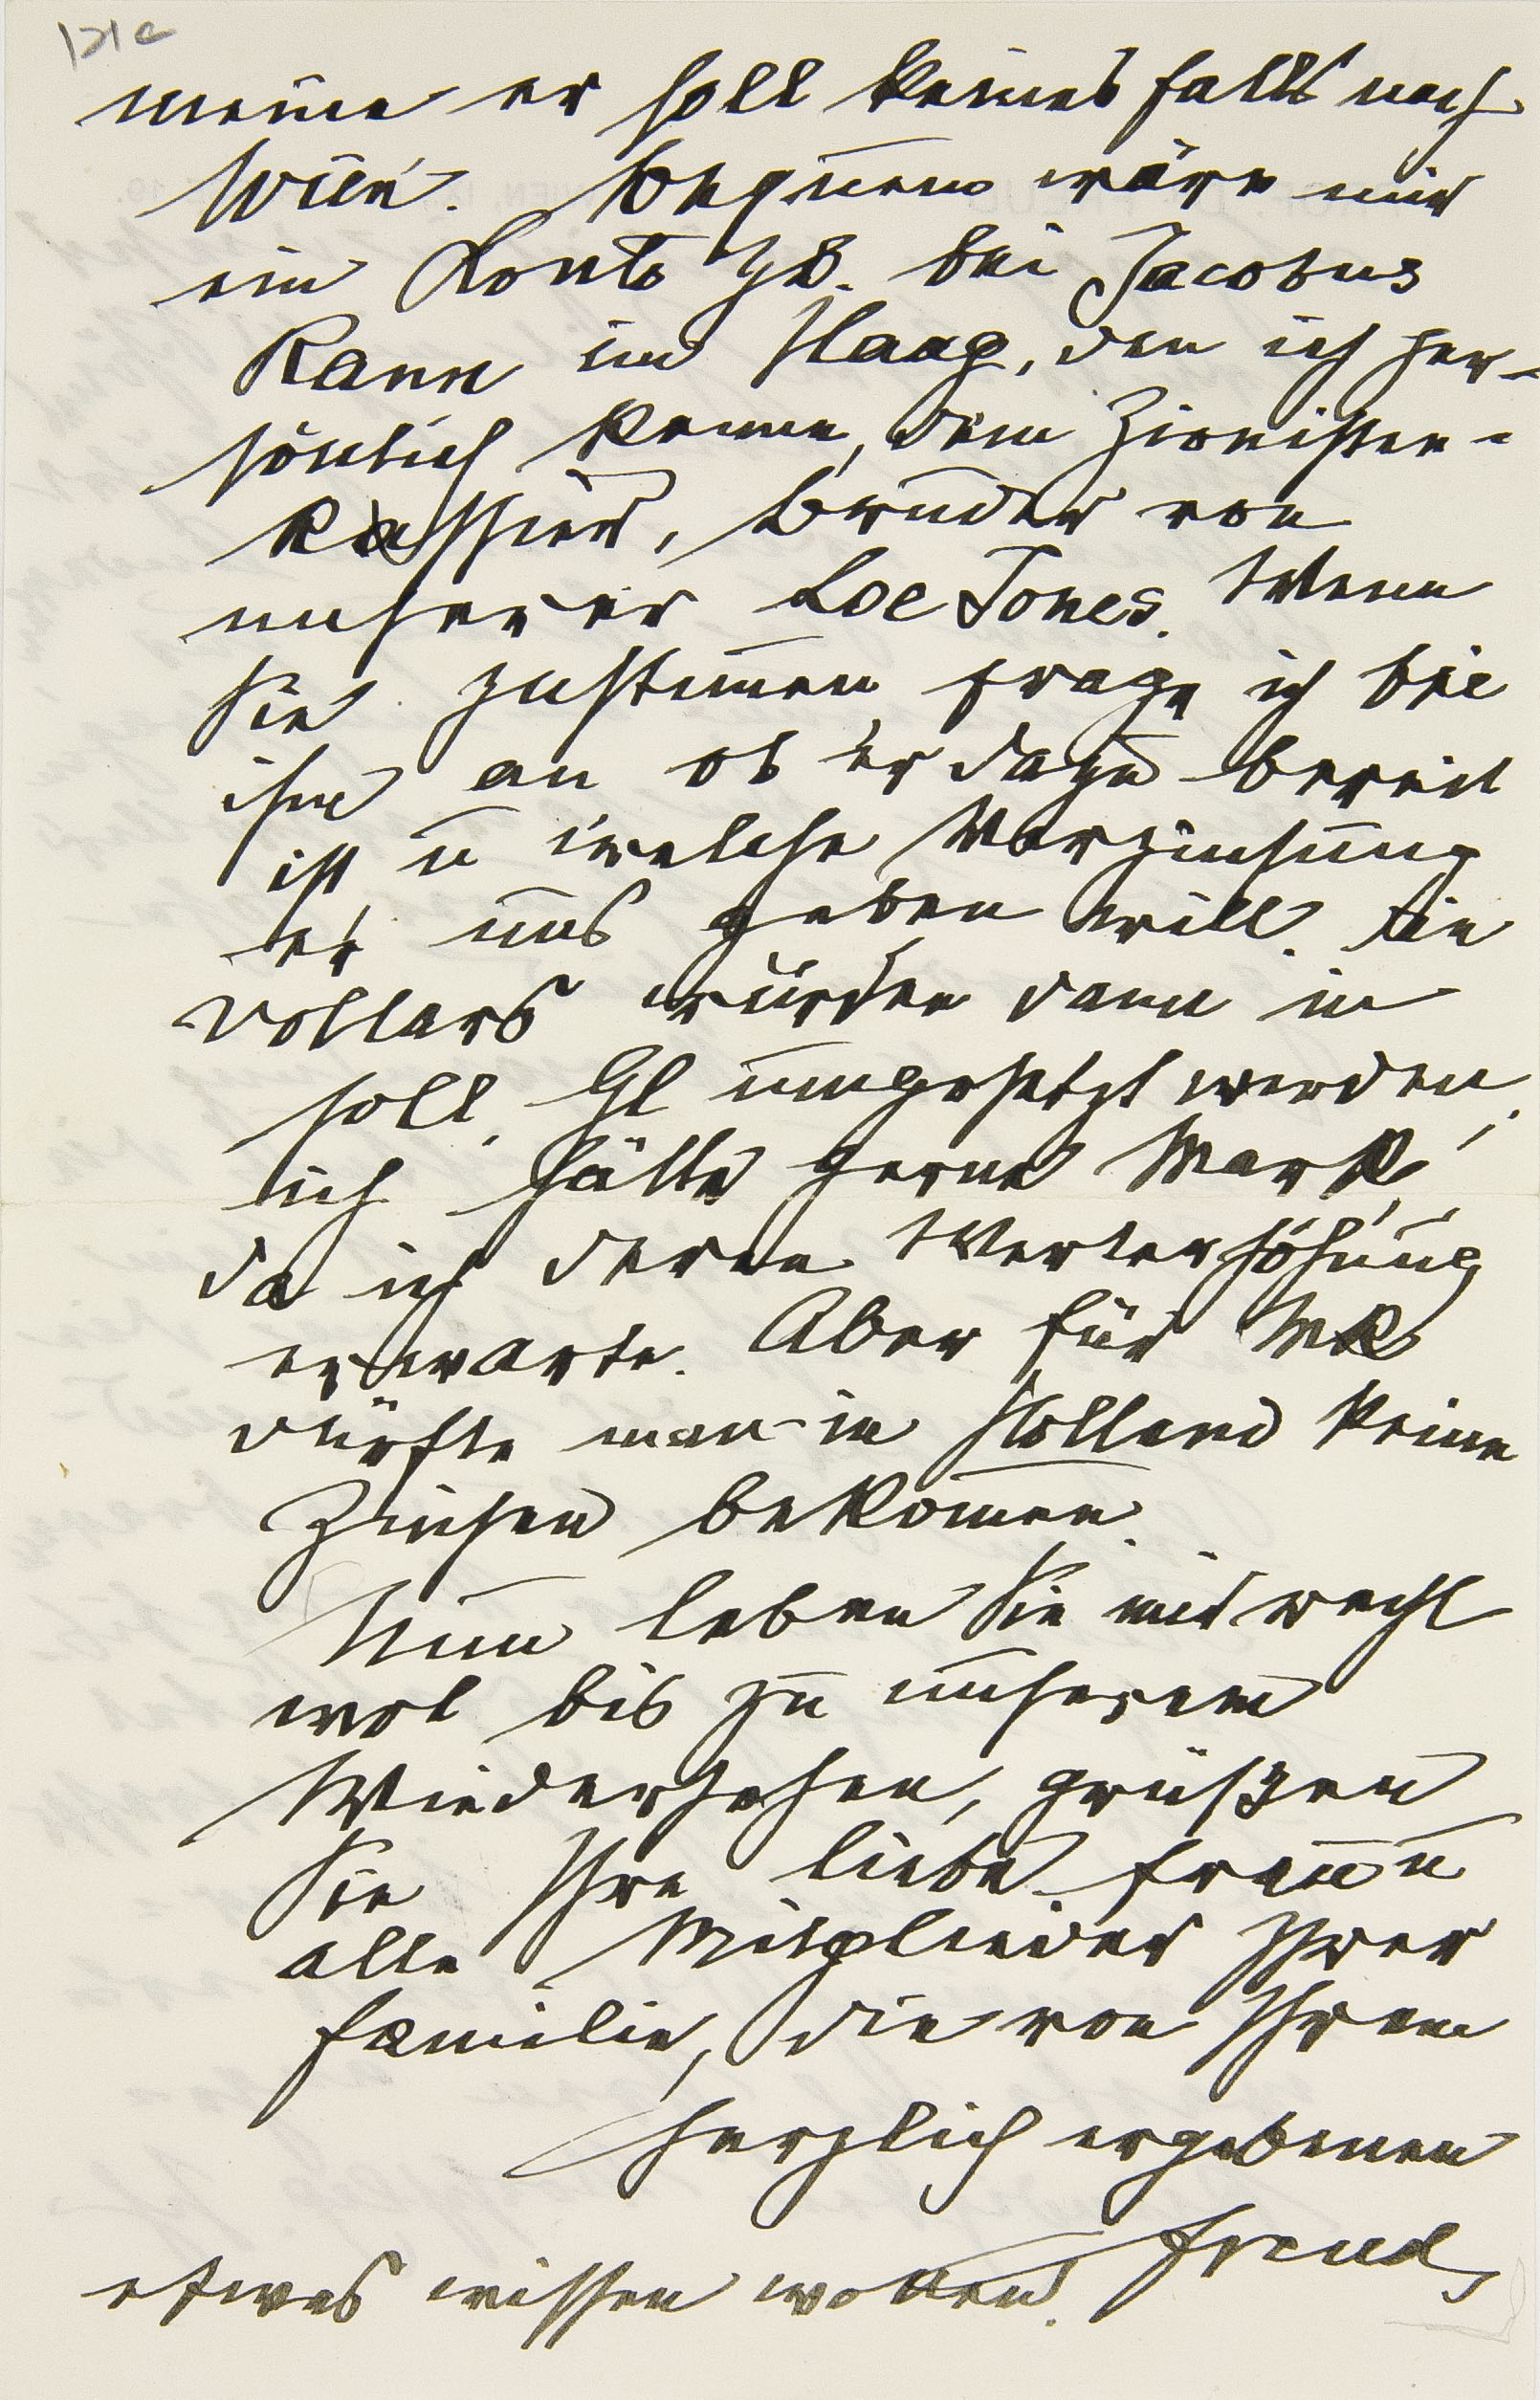 meine er soll keinesfalls nach
Wien. Bequem wäre mir
ein Konto zB. bei Jacobus
Kann im Haag, den ich per-
sönlich kenne, dem Zionisten-
kassier, Bruder von
unserer Loe Jones. Wenn
Sie zustimen frage ich bei
ihm an ob er dazu bereit
ist u welche Verzinsung
er uns geben will. Die
Dollars würden dann in
holl. Gl umgesetzt werden,
ich hätte gerne Mark,
da ich deren Werterhöhung
erwarte. Aber für Mk
dürfte man in Holland keine
Zinsen bekomen.
Nun leben Sie mir recht
wol bis zu unserem
Wiedersehen, grüßen
Sie Ihre liebe Frau u
alle Mitglieder Ihrer
Familie, die von Ihrem
herzlich ergebenen
Freud
etwas wissen wollen.